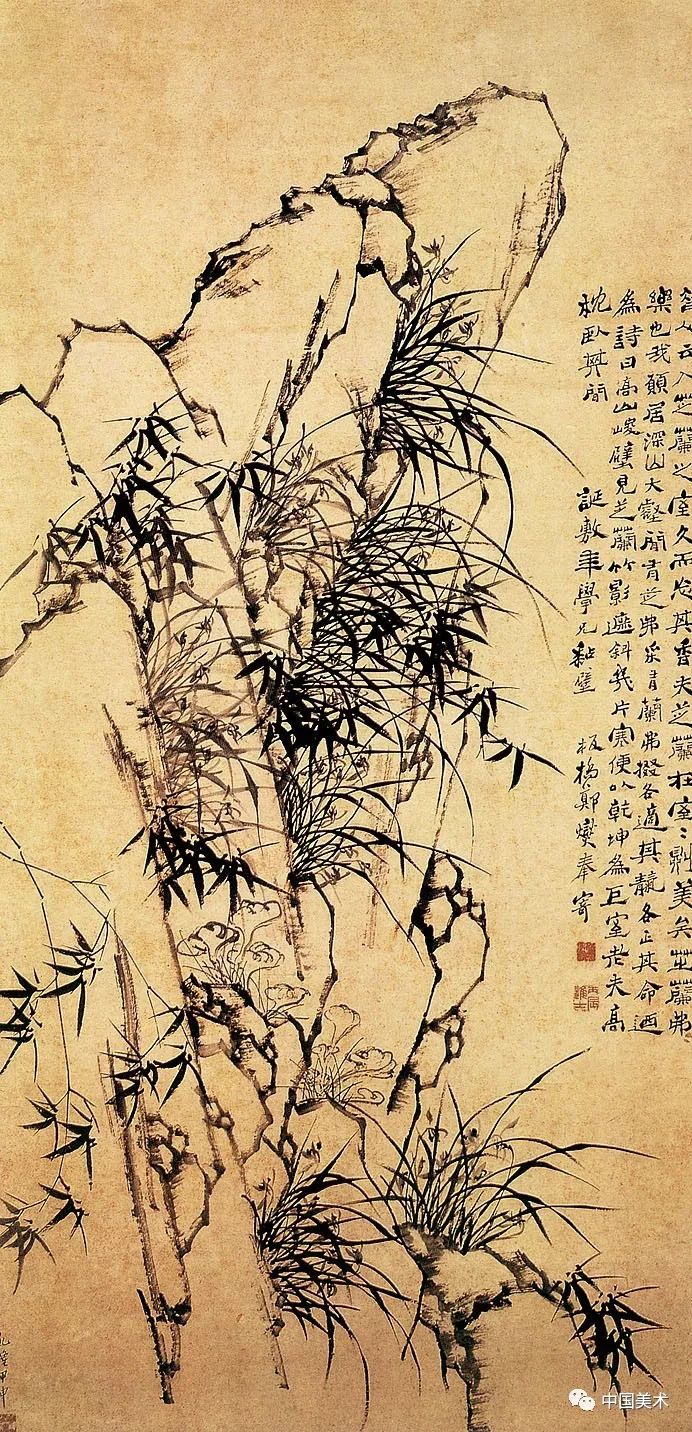 昔人云入芝蘭之室久而忘其香夫芝蘭在室〻則美矣芝蘭弗
樂也我願居深山大壑間有芝弗采有蘭弗掇各適其各正其命迺
為詩曰高山峻壁見芝蘭竹影遮斜幾片寒便以乾坤為巨室老夫高
枕臥其間 誕敷年學兄黏壁 板橋鄭燮奉寄
丙辰進士
隆甲申
中国美术